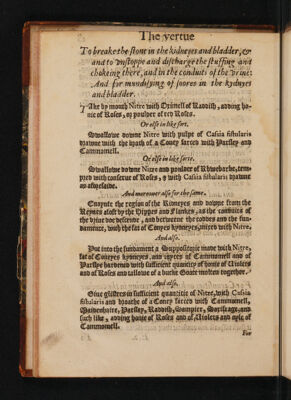 The vertue
To breake the stone in the kidneyes and bladder, &
and to vnstoppe and discharge the stuffing and
choking there, and in the conduits of the vrine:
And for mundifying of soores in the kydnyes
and bladder.
Take by mouth Nitre with Orimell of Raddish, adding ho-
nie of Roses, or poulder of red Roses.
Or else in like sort.
Swallowe downe Nitre with pulpe of Cassia fistularis
drawne with the broth of a Coney farced with Parsley and
Cammomell.
Or else in like sorte.
Swallowe downe Nitre and poulder of Rhewbarbe, tem-
pred with conserue of Roses, & with Cassia fistularis drawne
as aforesaide.
And moreouer also for the same.
Enoynte the region of the Kidneyes and downe from the
Reynes aloft by the Hippes and Flankes, as the conduits of
the vrine doe descende, and betweene the coddes and the fun-
dament, with the fat of Conyes kydneyes, mixed with Nitre.
And also.
Put into the fundament a Suppositorie made with Nitre,
fat of Conyes kydneyes, and iuyces of Cammomell and of
Parslye hardened with sufficient quantity of honie of Uiolets
and of Roses and tallowe of a bucke Goate molten together.
And also.
Giue glisters in sufficient quantitie of Nitre, with Cassia
fistularis and broathe of a Coney farced with Cammomell,
Maidenhaire, Parsley, Raddish, Sampire, and
such like, adding honie of Roses and of Uiolets and oyle of
Cammomell.
For